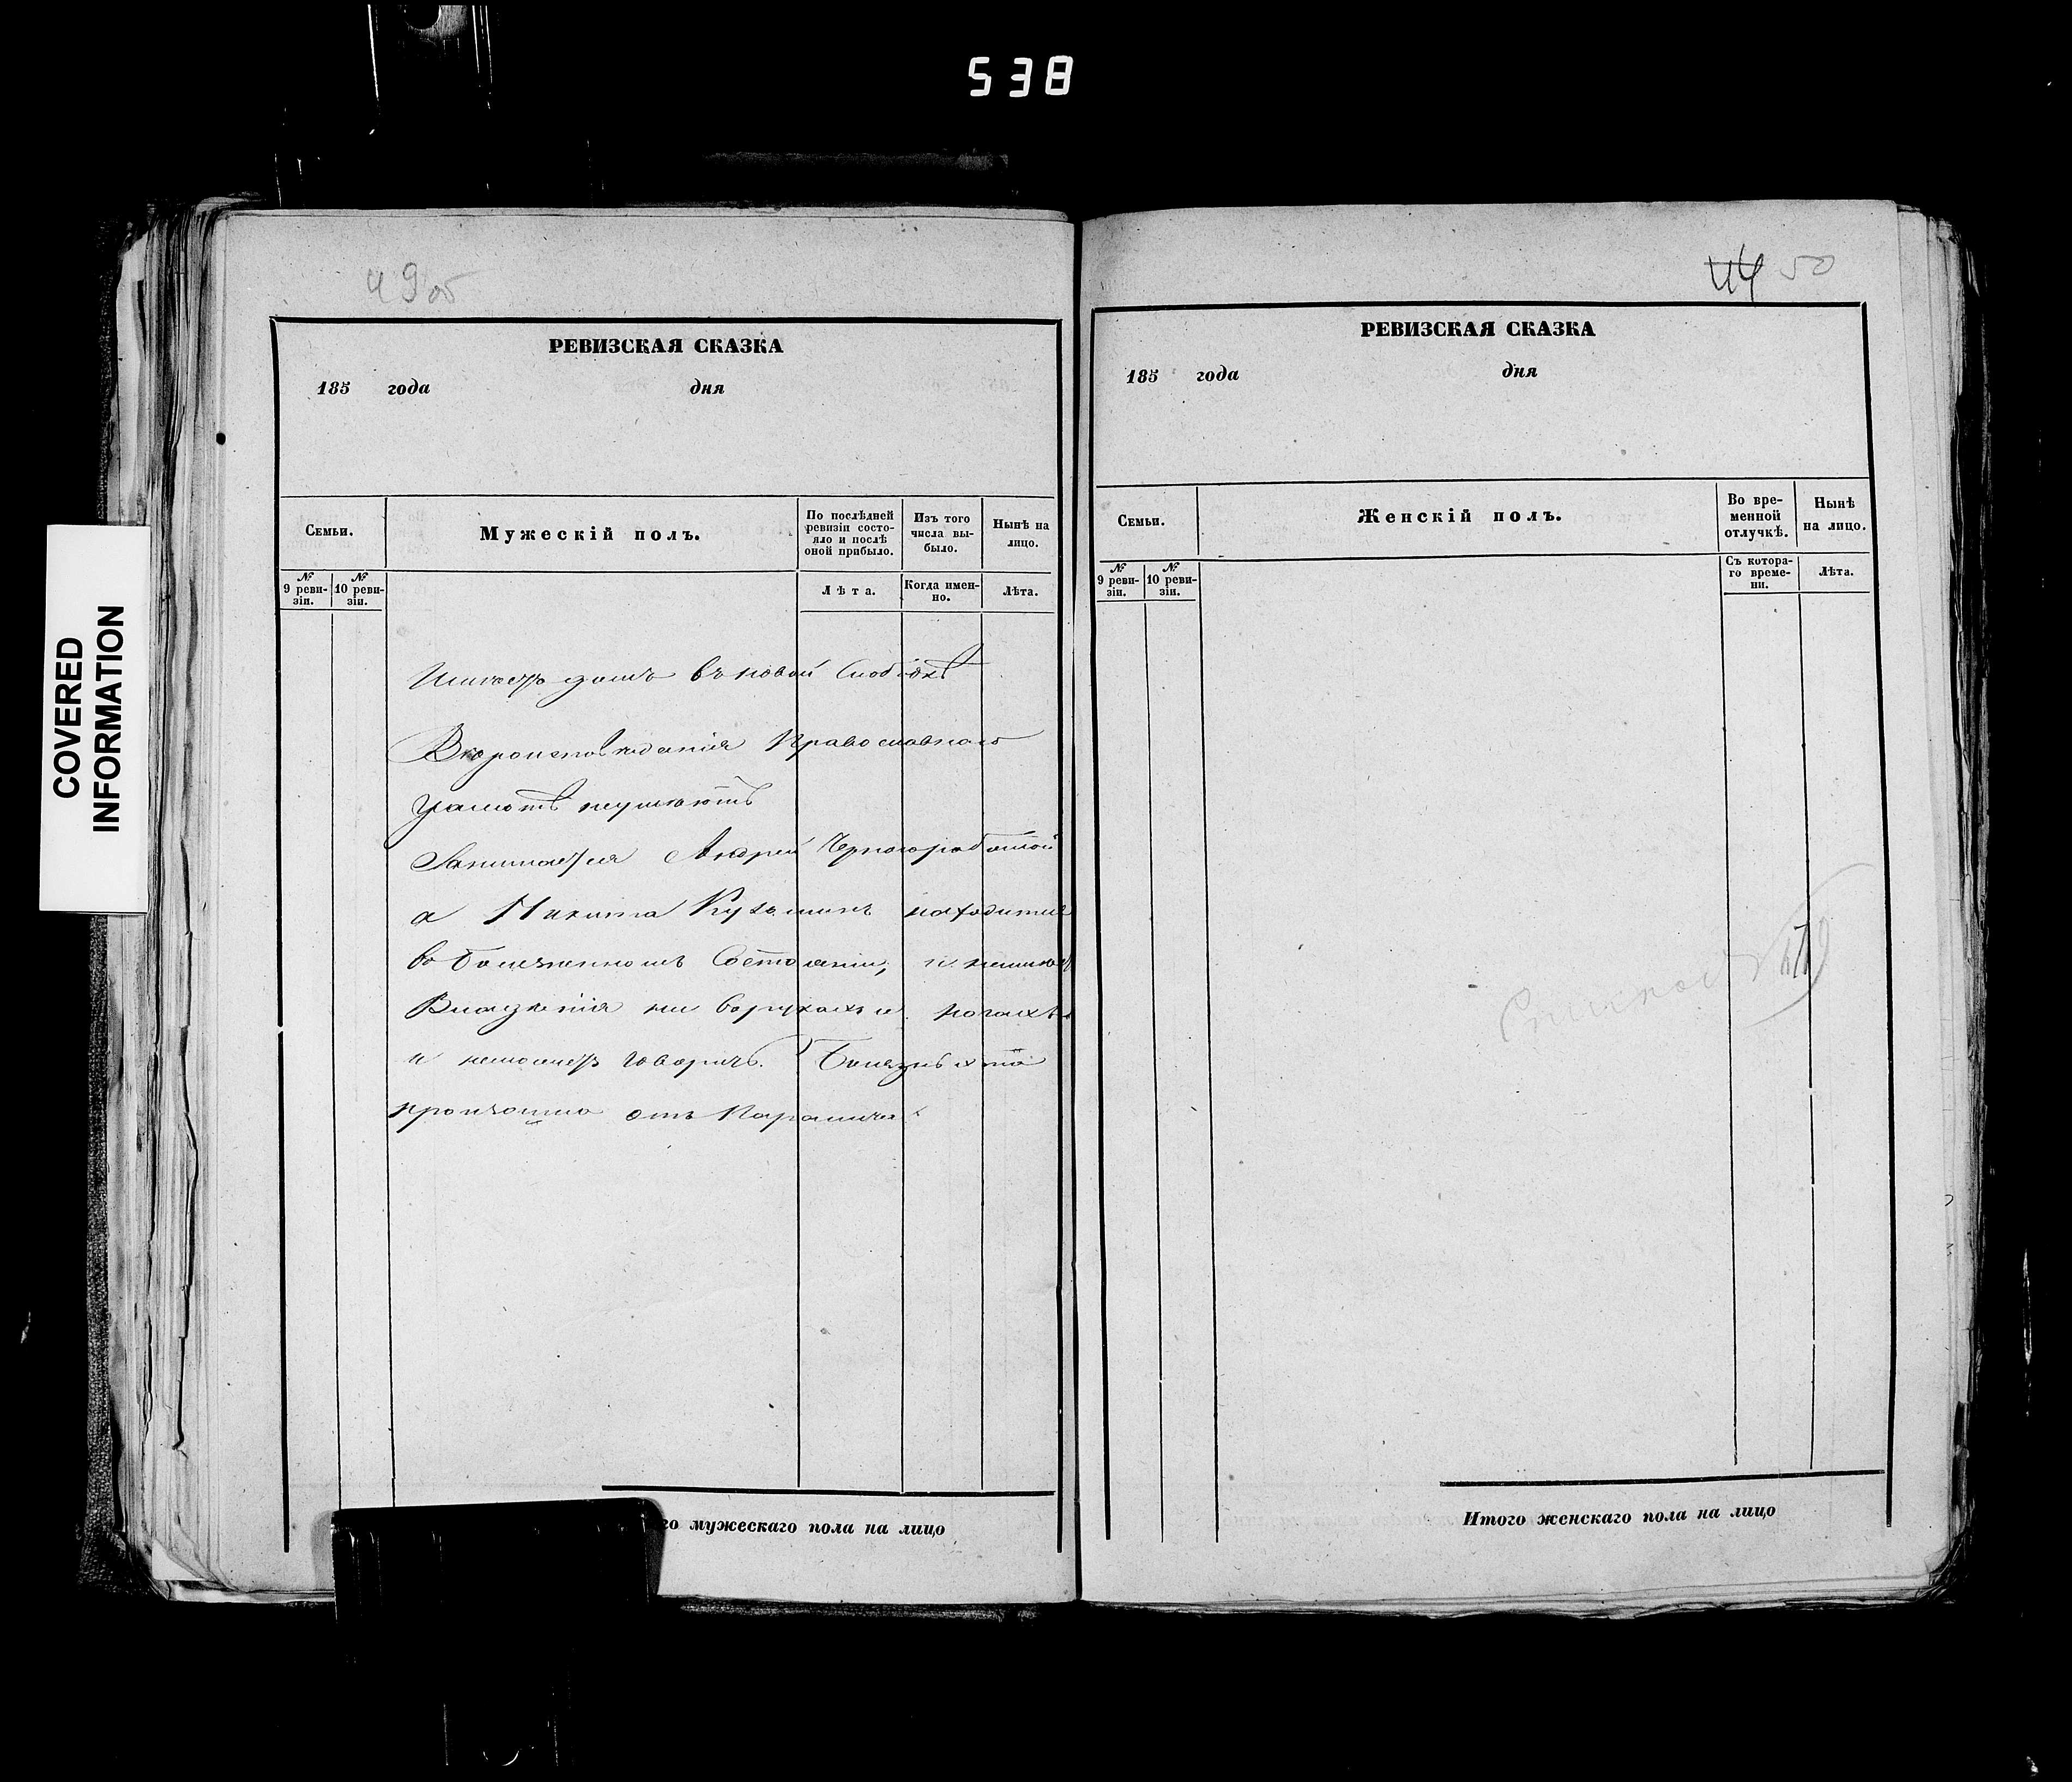 538
COVERED
INFORMATION
49об
РЕВИЗСКАЯ СКАЗКА
185 года дня
Семьи.
Мужескій полъ.
По послѣдней
ревизіи состо-
яло и послѣ
оной прибыло.
Изъ того
числа вы-
было.
Нынѣ на
лицо.
№
9 реви-
зіи.
№
10 реви-
зіи.
Лѣта.
Когда имен-
но.
Лѣта.
Имѣетъ домъ въ новой Слободкѣ
Вѣроисповѣданія Православнаго
грамотѣ неумѣютъ
Занимается Андрей Черноработой
а Никита Кузьминъ находится
во болезненномъ Состояніи, и неимѣет
Владѣнія ни въ рукахъ и ногахъ
и неможетъ говорить. Болезнь эта
произошла отъ Паралича
го мужескаго пола на лицо
44 50
РЕВИЗСКАЯ СКАЗКА
185 года дня
Семьи.
Женскій полъ.
Во вре-
менной
отлучкѣ.
Нынѣ
на лицо.
№
9 реви-
зіи.
№
10 реви-
зіи.
Съ котора-
го време-
ни.
Лѣта.
Итого женскаго пола на лицо